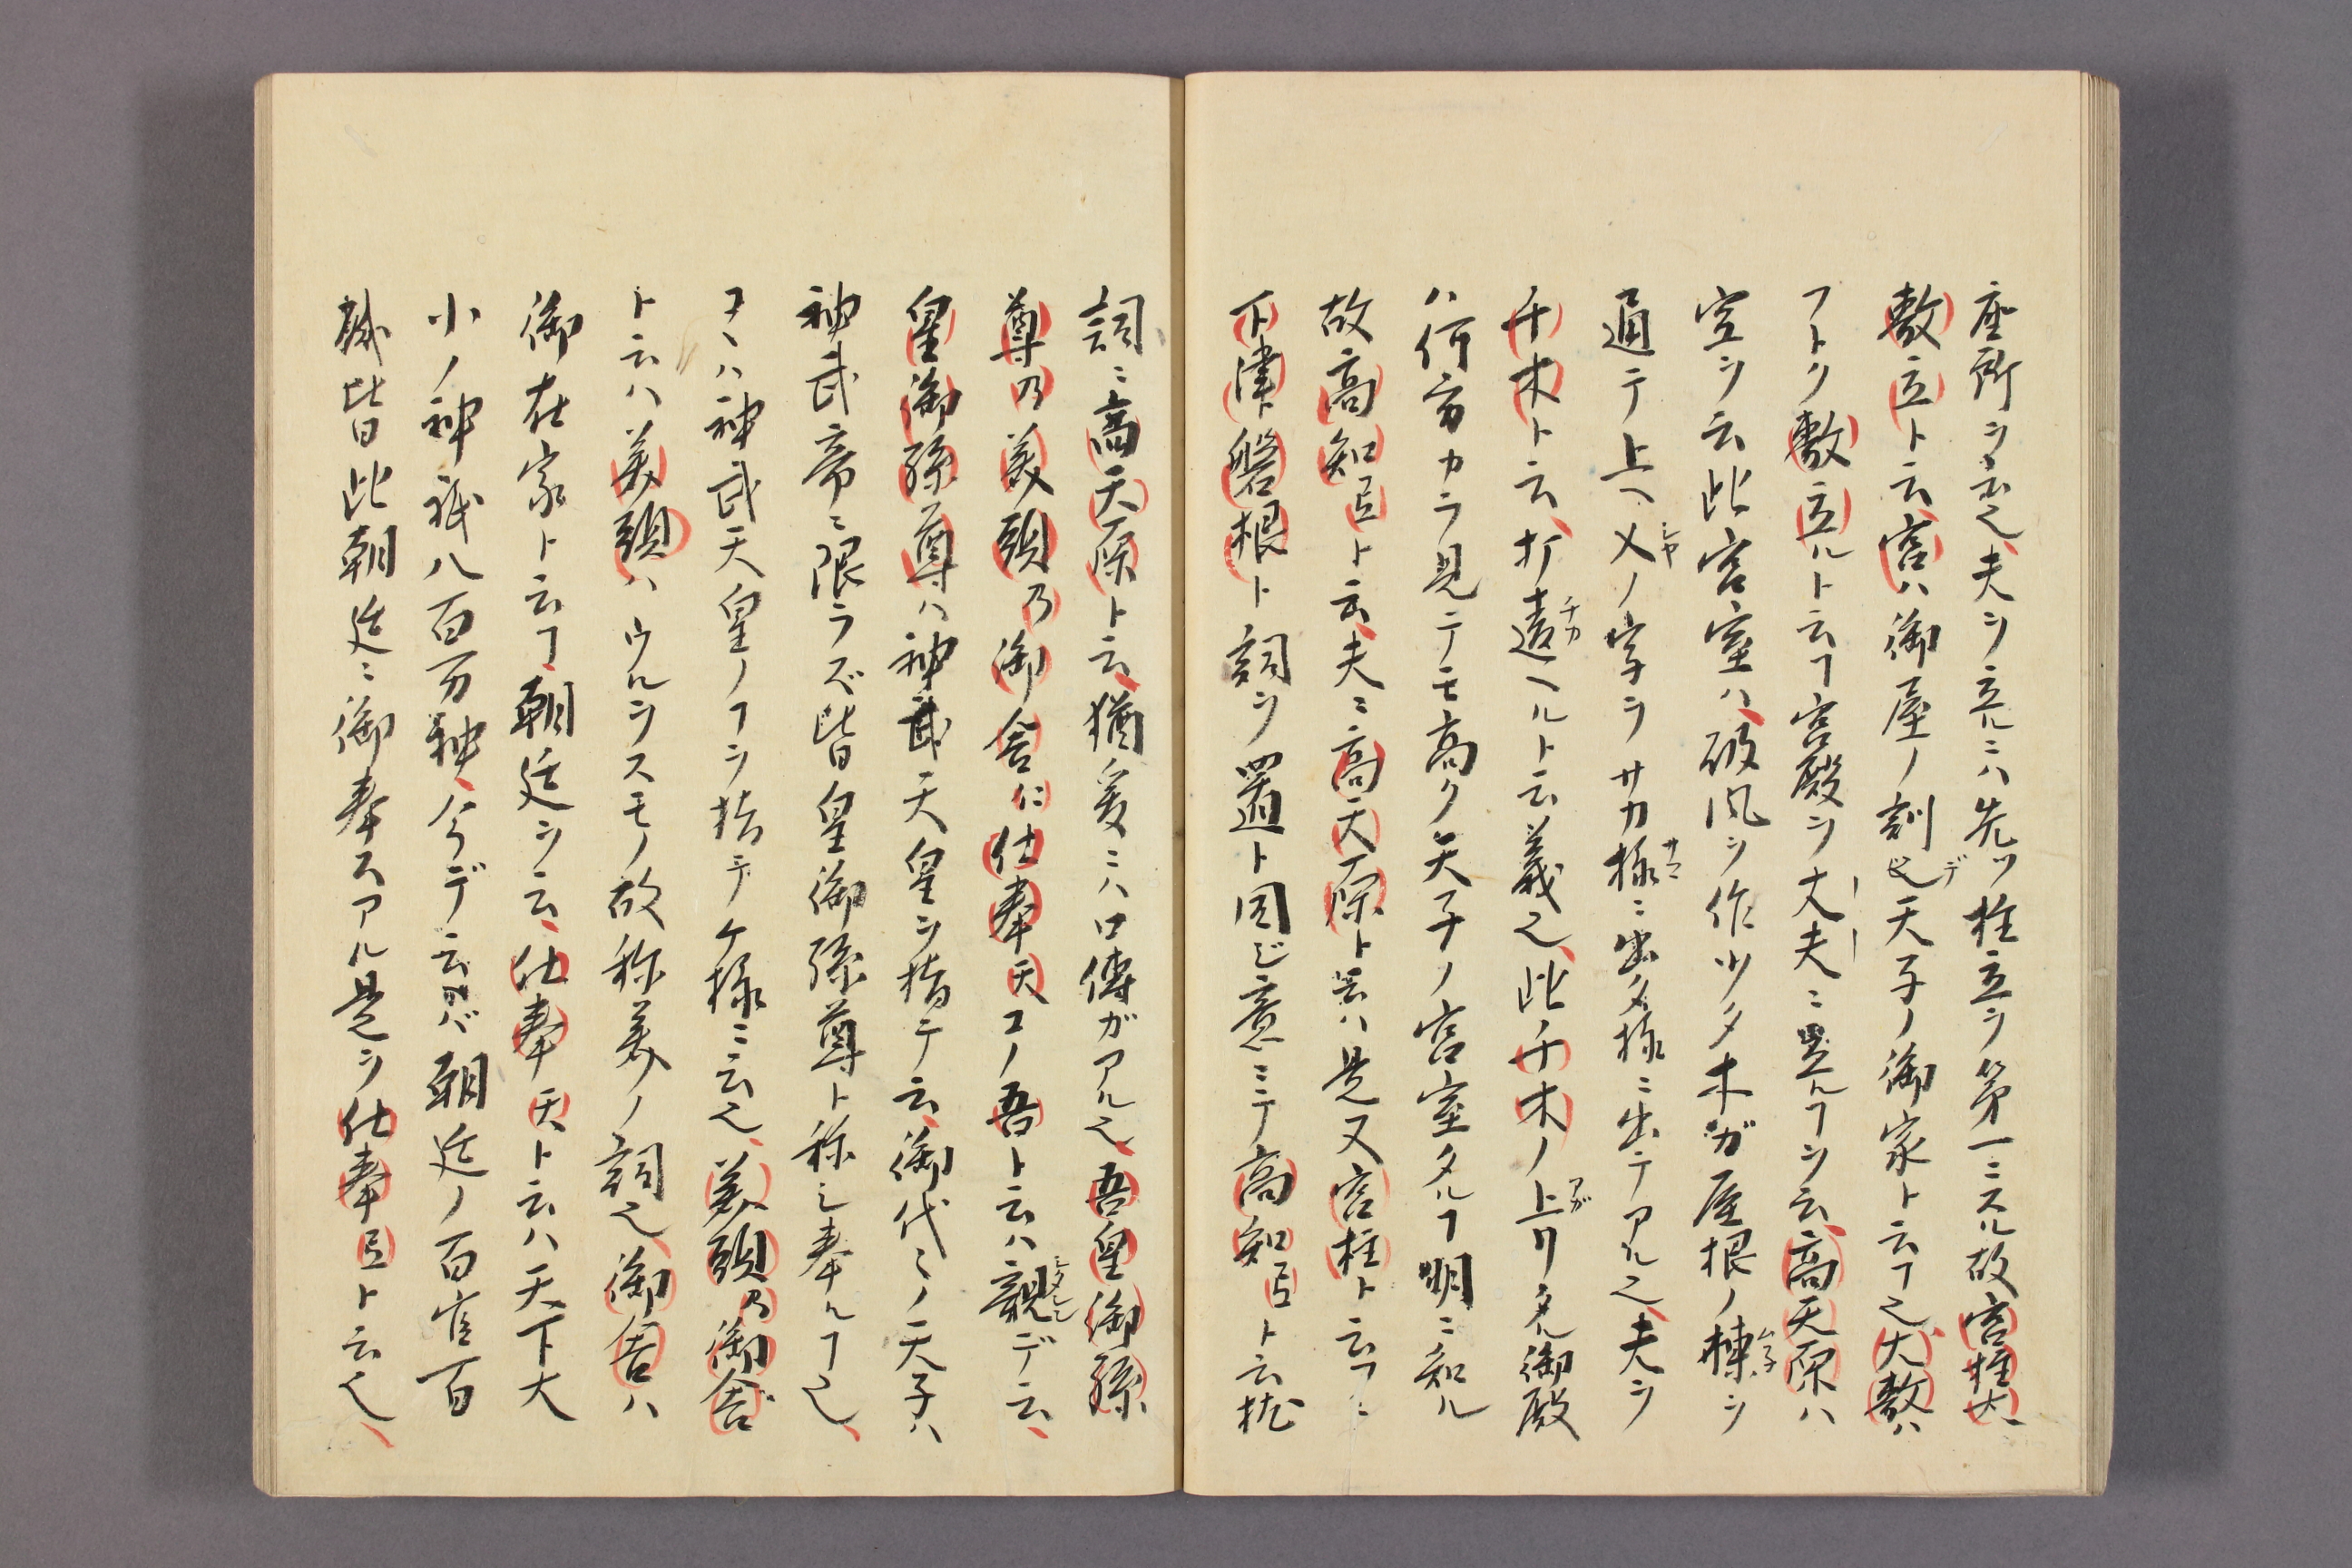 座所ヲ云之夫ヲ立ルニハ先ツ柱立ヲ第一ニスル故宮柱太
敷立ト云宮ハ御屋ノ訓ニデ天子ノ御家ト云ヿ之太敷ハ
フトク敷立ルト云ヿ宮殿ヲ丈夫ニ置ルヿヲ云高天原ハ
空ヲ云此宮室ハ破風ヲ作ツタ木ガ屋根ノ棟ヲ
通テ上ヘ㐅ノ字ヲサカ様ニ出タ様ニ出テアル之夫ヲ
千木ト云打違ヘルト云義之此千木ノ上リタル御殿
ハ何方カラ見テモ高ク天子ノ宮室タルヿ明ニ知ル
故高知㠯ト云夫ニ高天原ト云ハ是又宮柱ト云フニ
下津磐根ト詞ヲ置ト同ジ意ニテ高知㠯ト云枕
詞ニ高天原ト云猶爰ニハ口傳ガアル之吾皇御孫
尊乃美頭乃御舎仁仕奉天コノ吾ト云ハ親デ云
皇御孫尊ハ神武天皇ヲ指テ云御代〻ノ天子ハ
神武帝ニ限ラズ皆皇御孫尊ト称シ奉ルヿ之
コヽハ神武天皇ノヿヲ指テケ様ニ云之美頭乃御舎
ト云ハ美頭ハウルヲスモノ故称美ノ詞之御舎ハ
御在家ト云ヿ朝廷ヲ云仕奉天ト云ハ天下大
小ノ神祇八百万神今デ云ヘバ朝廷ノ百官百
職皆此朝廷ニ御奉スアル是ヲ仕奉㠯ト云之